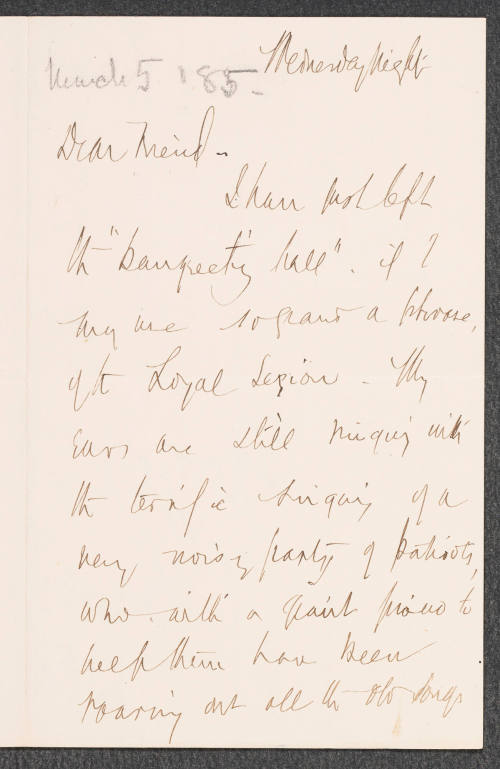 March 5 '85.
Wednesday Night
Dear Friend -
I have just left
the "banqueting hall". if I
may use so grand a phrase,
of the Loyal Legion - My
Ears are still ringing with
the terrific singing of a
very noisy party of patriots,
who with a faint piano to
help them have been
roaring out all the old songs